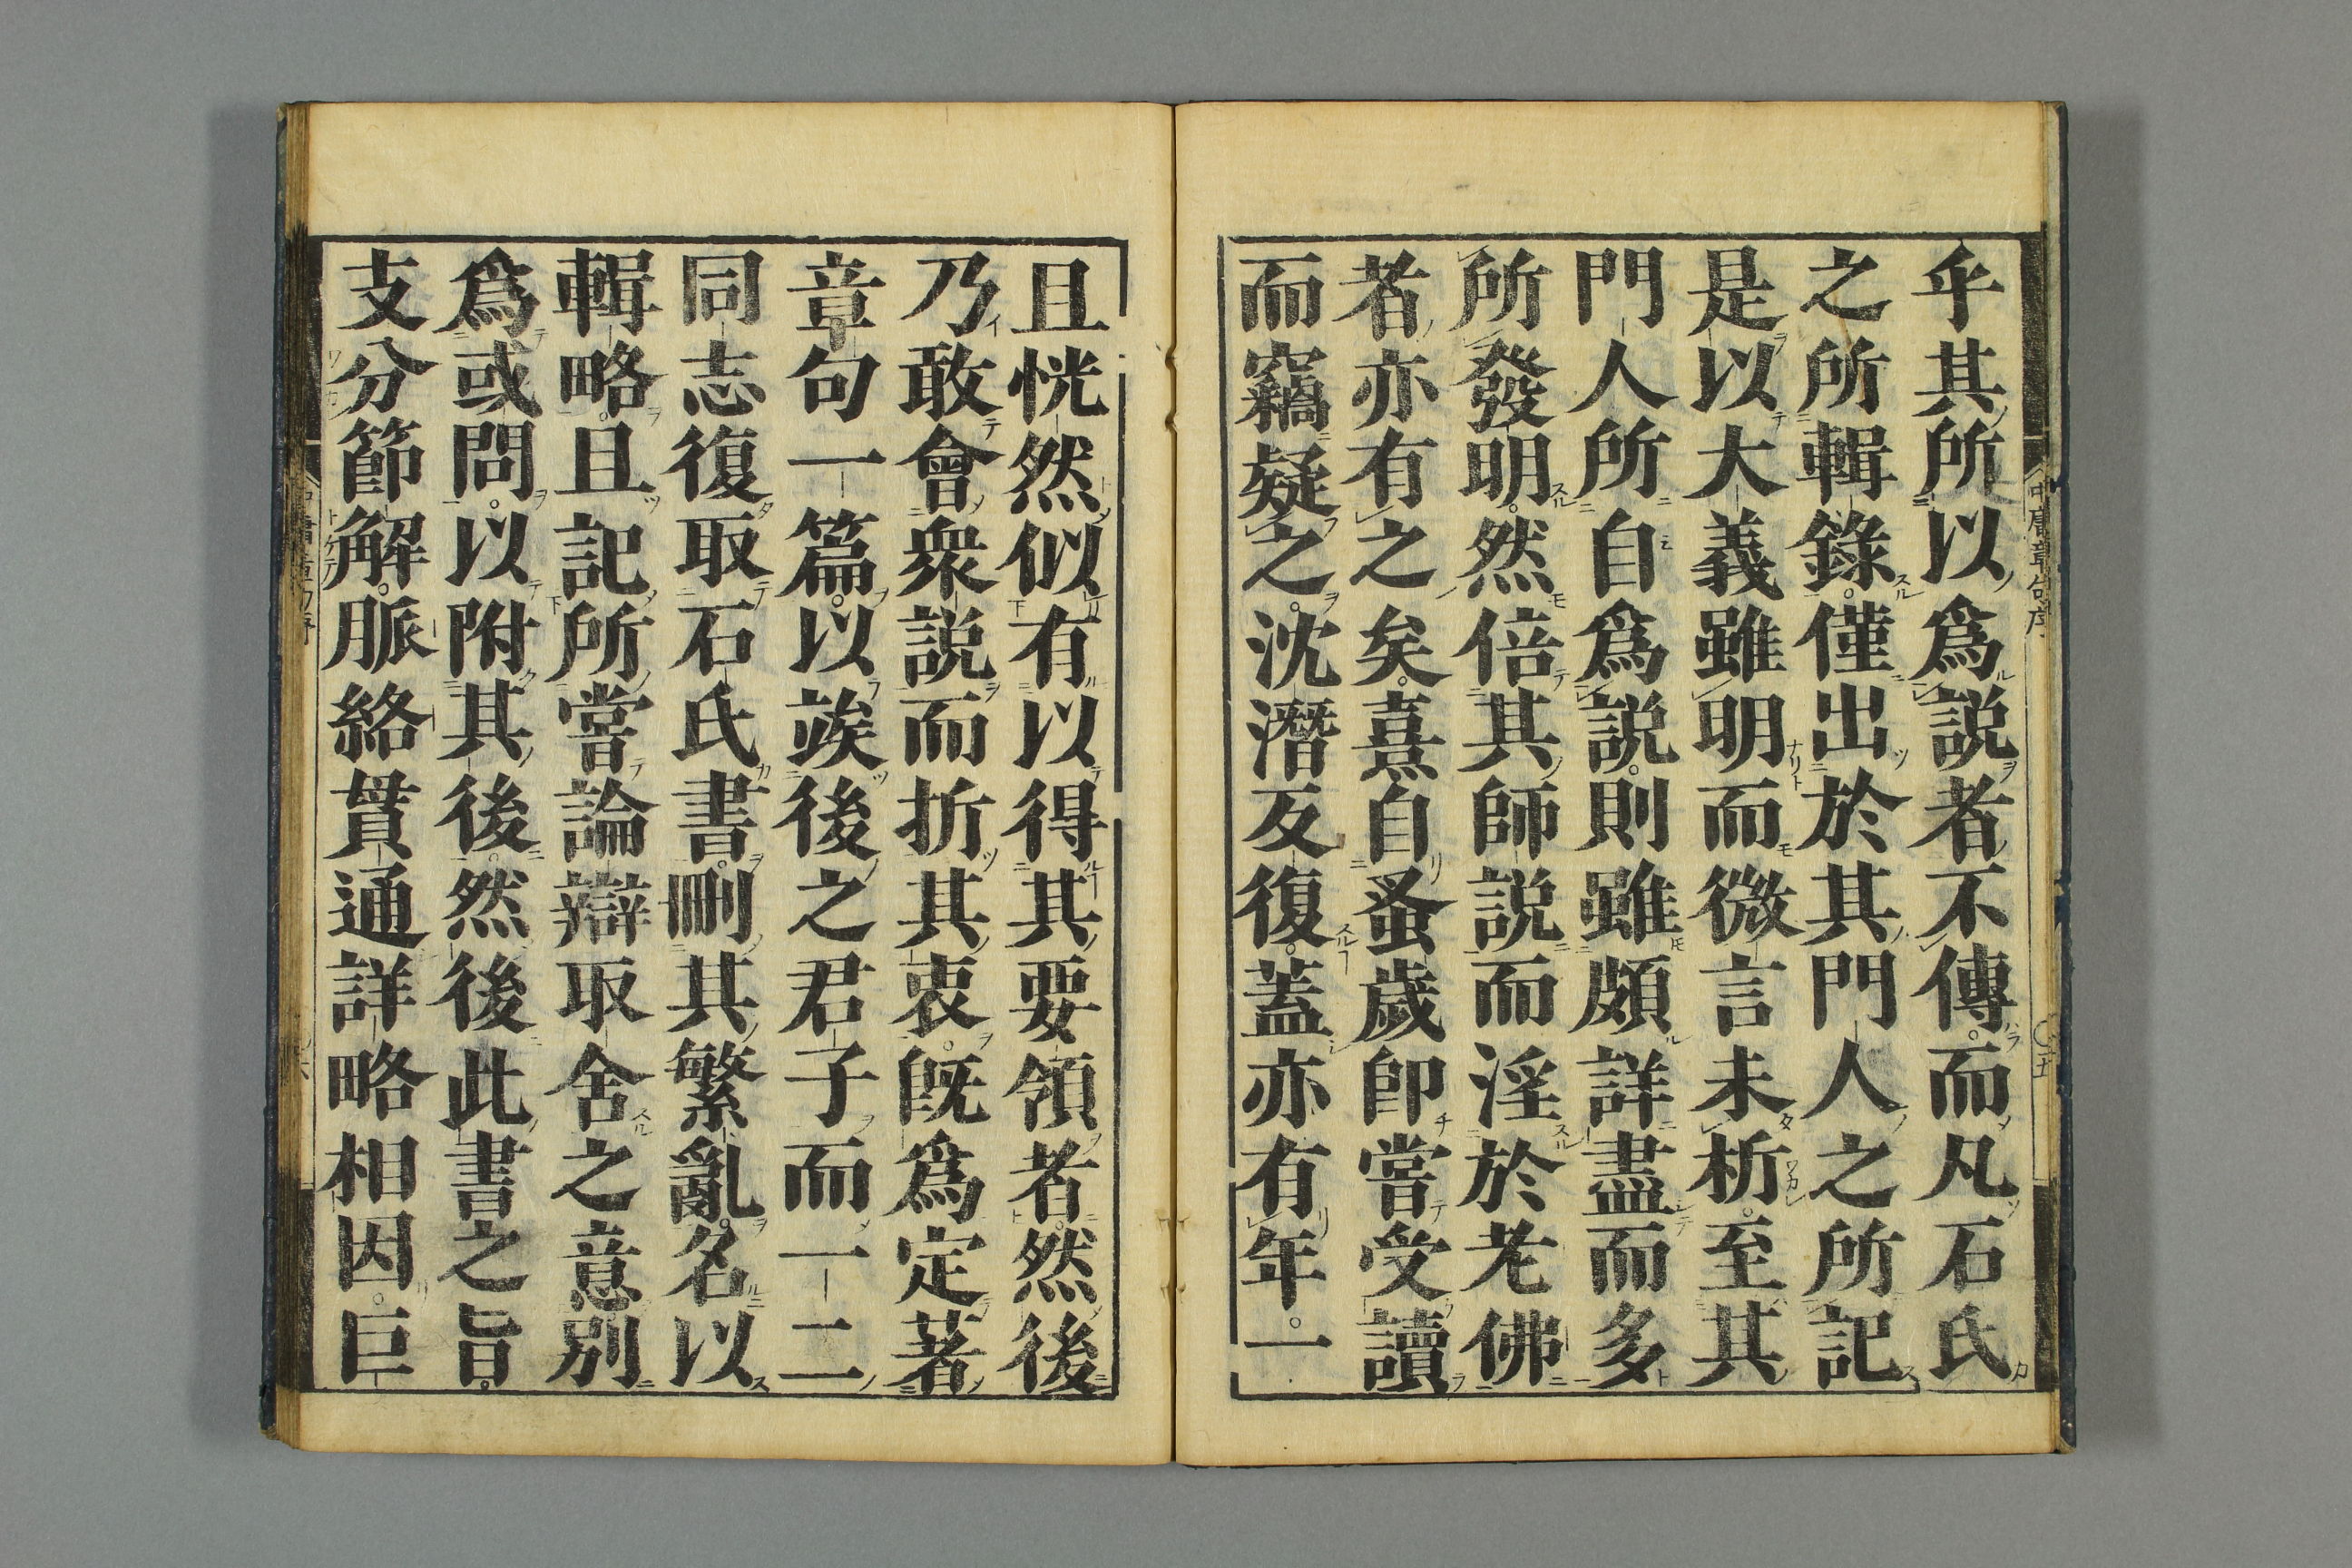 乎其所以爲説者不傳而凡石氏
之所輯錄僅出於其門人之所記
是以大義雖明而微言未析至其
門人所自爲説則雖頗詳盡而多
所發明然倍其師説而淫於老佛
者亦有之矣熹自蚤歲卽嘗受讀
而竊疑之沈潛反復蓋亦有年一
中庸章句序
〇五
且恍然似有以得其要領者然後
乃敢會衆説而折其衷旣爲定著
章句一篇以竢後之君子而一二
同志復取石氏書刪其繁亂名以
輯略且記所嘗論辯取舍之意別
爲或問以附其後然後此書之旨
支分節解脈絡貫通詳略相因巨